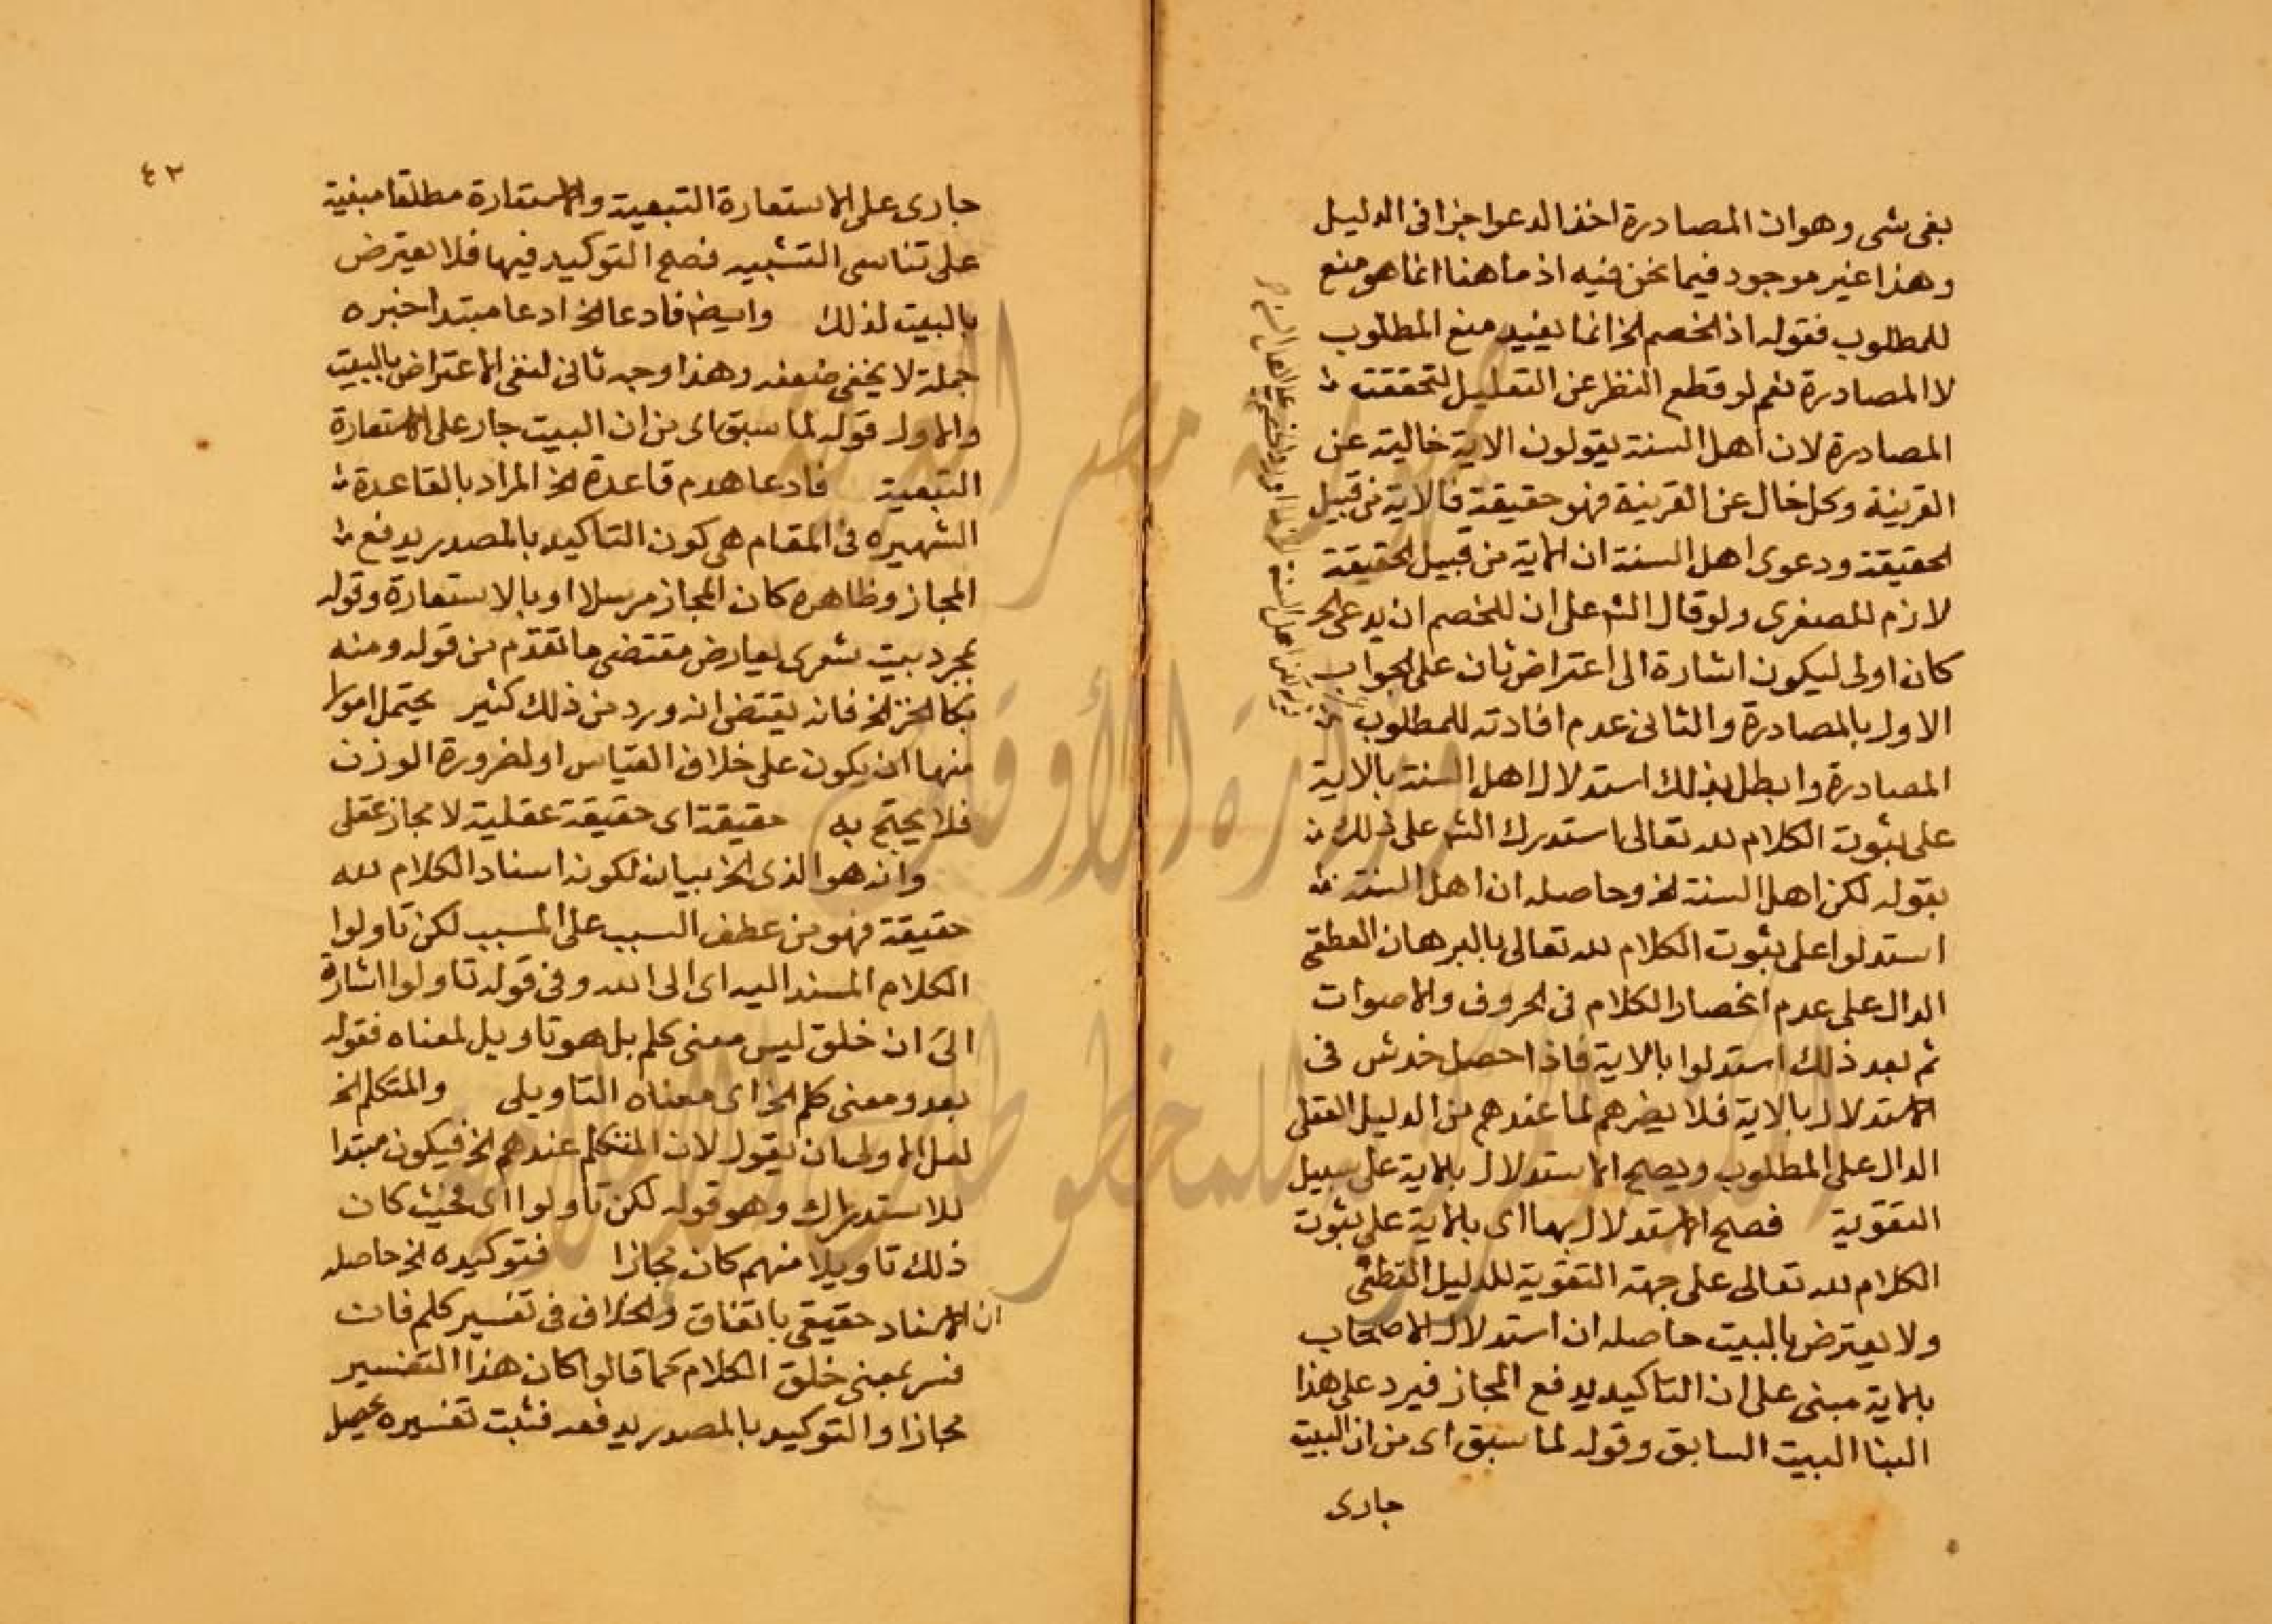 بقى شى وهو ان المصادرة اخذ الدعوا جزا فى الدليل
وهذا غير موجود فيما نحن فيه اذ ما هنا انما هو منع
للمطلوب فقوله اذ الخصم الخ انما يفيد منع المطلوب
لا المصادرة نعم لو قطع النظر عن التعليل لتحققت
المصادرة لان اهل السنة يقولون الاية خالية عن
القرينة وكل خال عن القرينة فهو حقيقة فالاية من قبيل
الحقيقة ودعوى اهل السنة ان الاية من قبيل الحقيقة
لازم للصغرى ولو قال الشم على ان للخصم ان يدعى الخ
كان اولى ليكون اشارة الى اعتراض ثان على الجواب
الاول بالمصادرة والثانى عدم افادته للمطلوب
المصادرة وابطل بذلك استدلال اهل السنة بالاية
على ثبوت الكلام لله تعالى استدرك الشم على ذلك
بقوله لكن اهل السنة الخ وحاصله ان اهل السنة
استدلوا على ثبوت الكلام لله تعالى بالبرهان القطعى
الدال على عدم انحصار الكلام فى الحروف والاصوات
ثم بعد ذلك استدلوا بالاية فاذا حصل خدش فى
الاستدلال بالاية فلا يضرهم لما عندهم من الدليل العقلى
الدال على المطلوب ويصح الاستدلال بالاية على سبيل
التقوية فصح الاستدلال بها اى بالاية على ثبوت
الكلام لله تعالى على جهة التقوية للدليل القطعى
ولا يعترض بالبيت حاصله ان استدلال الاصحاب
بالاية مبنى على ان التاكيد يدفع المجاز فيرد على هذا
البنا البيت السابق وقوله لما سبق اى من ان البيت
جارى
٤٢
جارى على الاستعارة التبعية والاستعارة مطلقا مبنية
على تناسى التشبيه فصح التوكيد فيها فلا يعترض
بالبيت لذلك وايضم فادعا الخ ادعا مبتدا خبره
جملة لا يخفى ضعفه وهذا وجه ثانى لنفى الاعتراض بالبيت
والاول قوله لما سبق اى من ان البيت جار على الاستعارة
التبعية فادعا هدم قاعدة الخ المراد بالقاعدة
الشهيره فى المقام هى كون التاكيد بالمصدر يدفع
المجاز وظاهره كان المجاز مرسلا او بالاستعارة وقوله
بمجرد بيت شعرى يعارض مقتضى ما تقدم من قوله ومنه
بكا الخز الخ فانه يقتضى انه ورد من ذلك كثير يحتمل امورا
منها ان يكون على خلاف القياس او لضرورة الوزن
فلا يحتج به حقيقة اى حقيقة عقلية لا مجاز عقلى
وانه هو الذى الخ بيان لكون اسناد الكلام لله
حقيقة فهو من عطف السبب على المسبب لكن تاولوا
الكلام المسند اليه اى الى الله وفى قوله تاولوا اشارة
الى ان خلق ليس معنى كلم بل هو تاويل لمعناه فقوله
بعد ومعنى كلم الخ اى معناه التاويلى والمتكلم الخ
لعل الاولى ان يقول لان المتكلم عندهم الخ فيكون مبتدا
للاستدراك وهو قوله لكن تاولوا اى فحيث كان
ذلك تاويلا منهم كان مجازا فتوكيده الخ حاصله
ان الاسناد حقيقى باتفاق والخلاف فى تفسير كلم فان
فسر بمعنى خلق الكلام كما قالوا كان هذا التفسير
مجازا والتوكيد بالمصدر يدفعه فثبت تفسيره بحصل